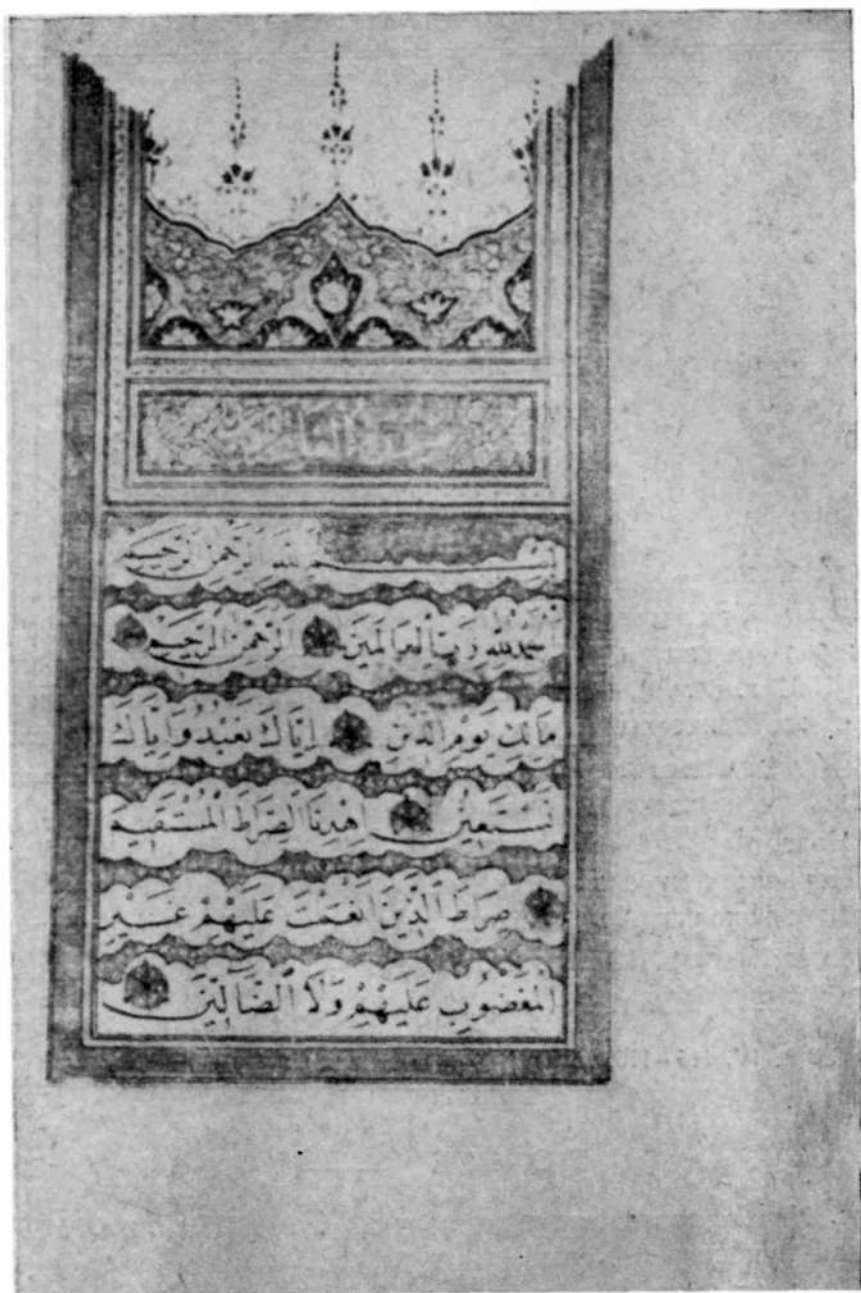 سورة الفا
بسم الله الرحمن الرحيم
الحمد لله رب العالمين الرحمن الرحيم
مالك يوم الدين اياك نعبد واياك
نستعين اهدنا الصراط المستقيم
صراط الذين انعمت عليهم غير
المغضوب عليهم ولا الضالين